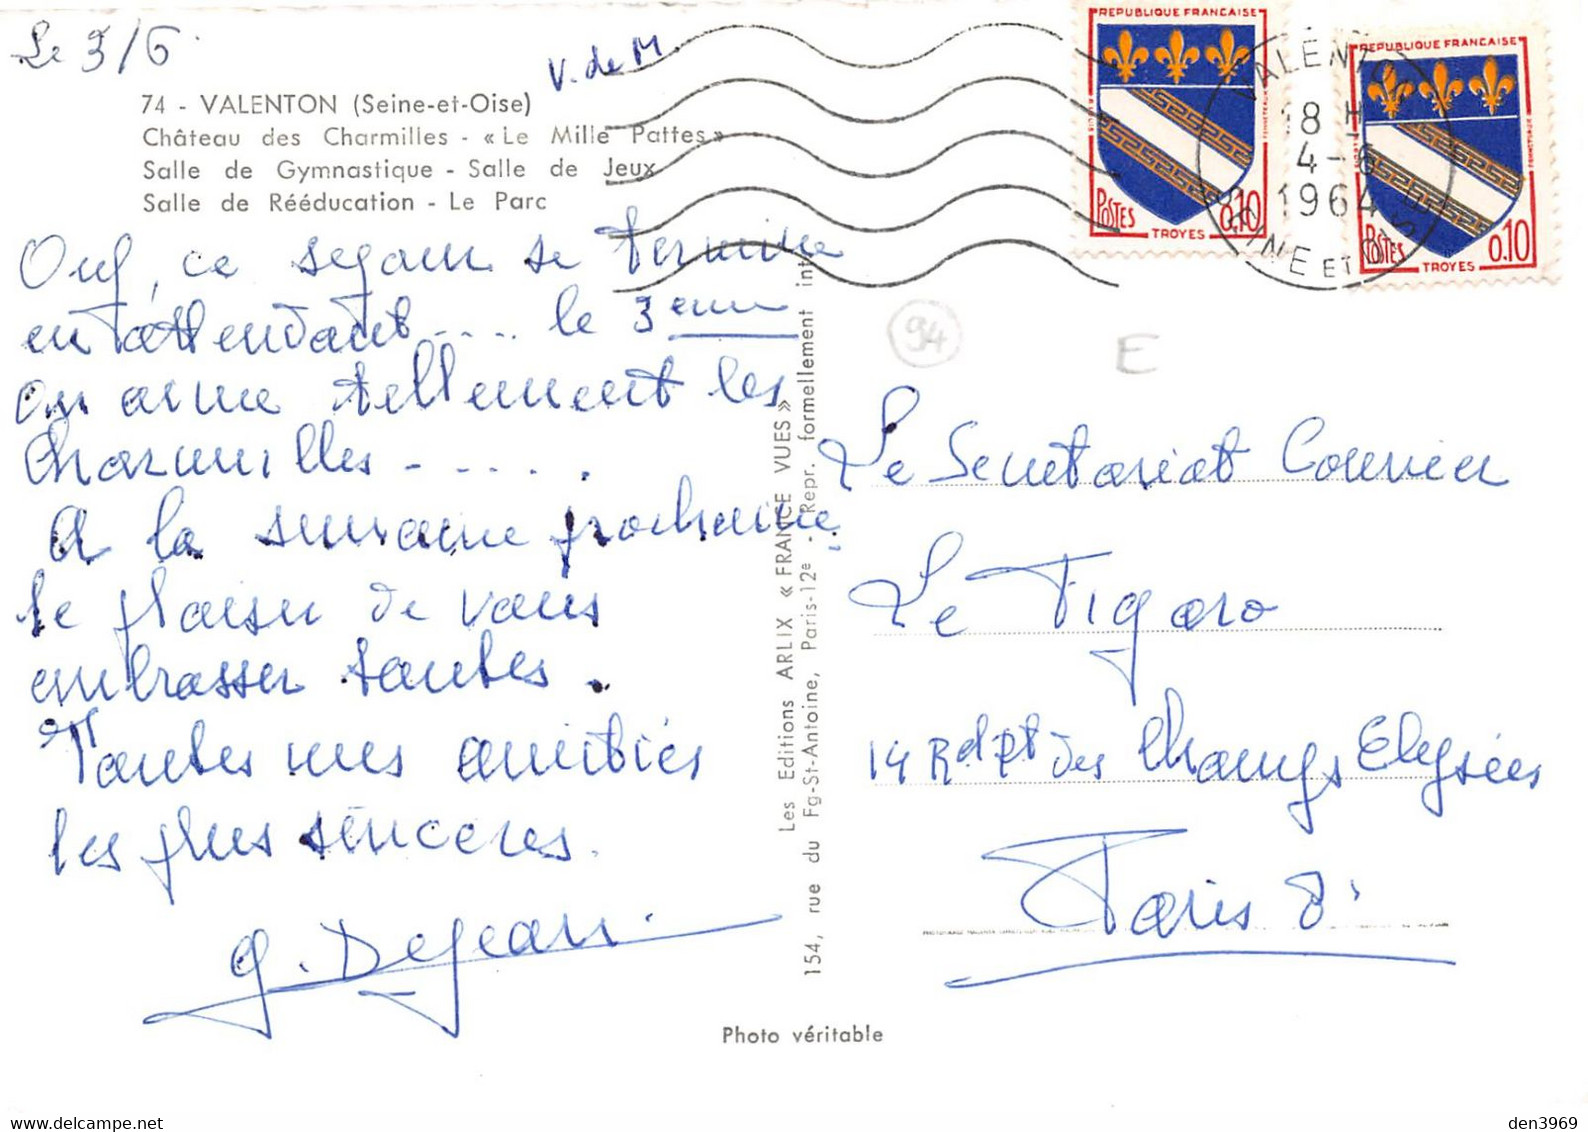 Le 3/6
V. de M.
74 - VALENTON (Seine-et-Oise)
Château des Charmilles - « Le Mille Pattes »
Salle de Gymnastique - Salle de Jeux
Salle de Rééducation - Le Parc
Ouf, ce sejour se termine
en attendant .... le 3eme
on aime tellement les
Charmilles - - . . .
A la semaine prochaine,
le plaisir de vous
embrasser toutes.
Toutes mes amitiés
les plus sincères.
G. Dejean
REPUBLIQUE FRANCAISE
POSTES
0,10
TROYES
REPUBLIQUE FRANCAISE
POSTES
0.10
TROYES
VALENTON
18 H
4-6
1964
SEINE ET OISE
94
E
Les Editions ARLIX « FRANCE VUES »
154, rue du Fg-St-Antoine, Paris-12e - Repr. formellement int.
Le Secretariat Courrier
Le Figaro
14 Rd pt des Champs Elysées
Paris 8.
Photo véritable
den3969